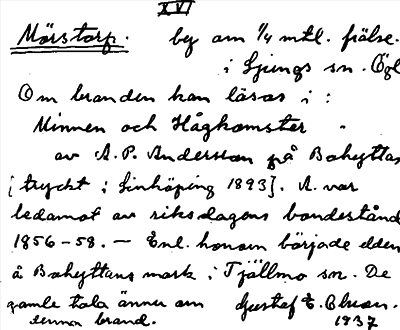 XVI
Mörstorp. by om 1/4 mtl. frälse.
i Ljungs sn. Ögl
Om branden kan läsas i:
Minnen och Hågkomster
av A. P. Andersson på Bohyttan
[tryckt i Linköping 1893]. A. var
ledamot av riksdagens bondestånd
1856-58. — Enl. honom började elden
å Bohyttans mark i Tjällmo sn. De
gamle tala ännu om Gustaf E. Olsson.
denna brand. 1937